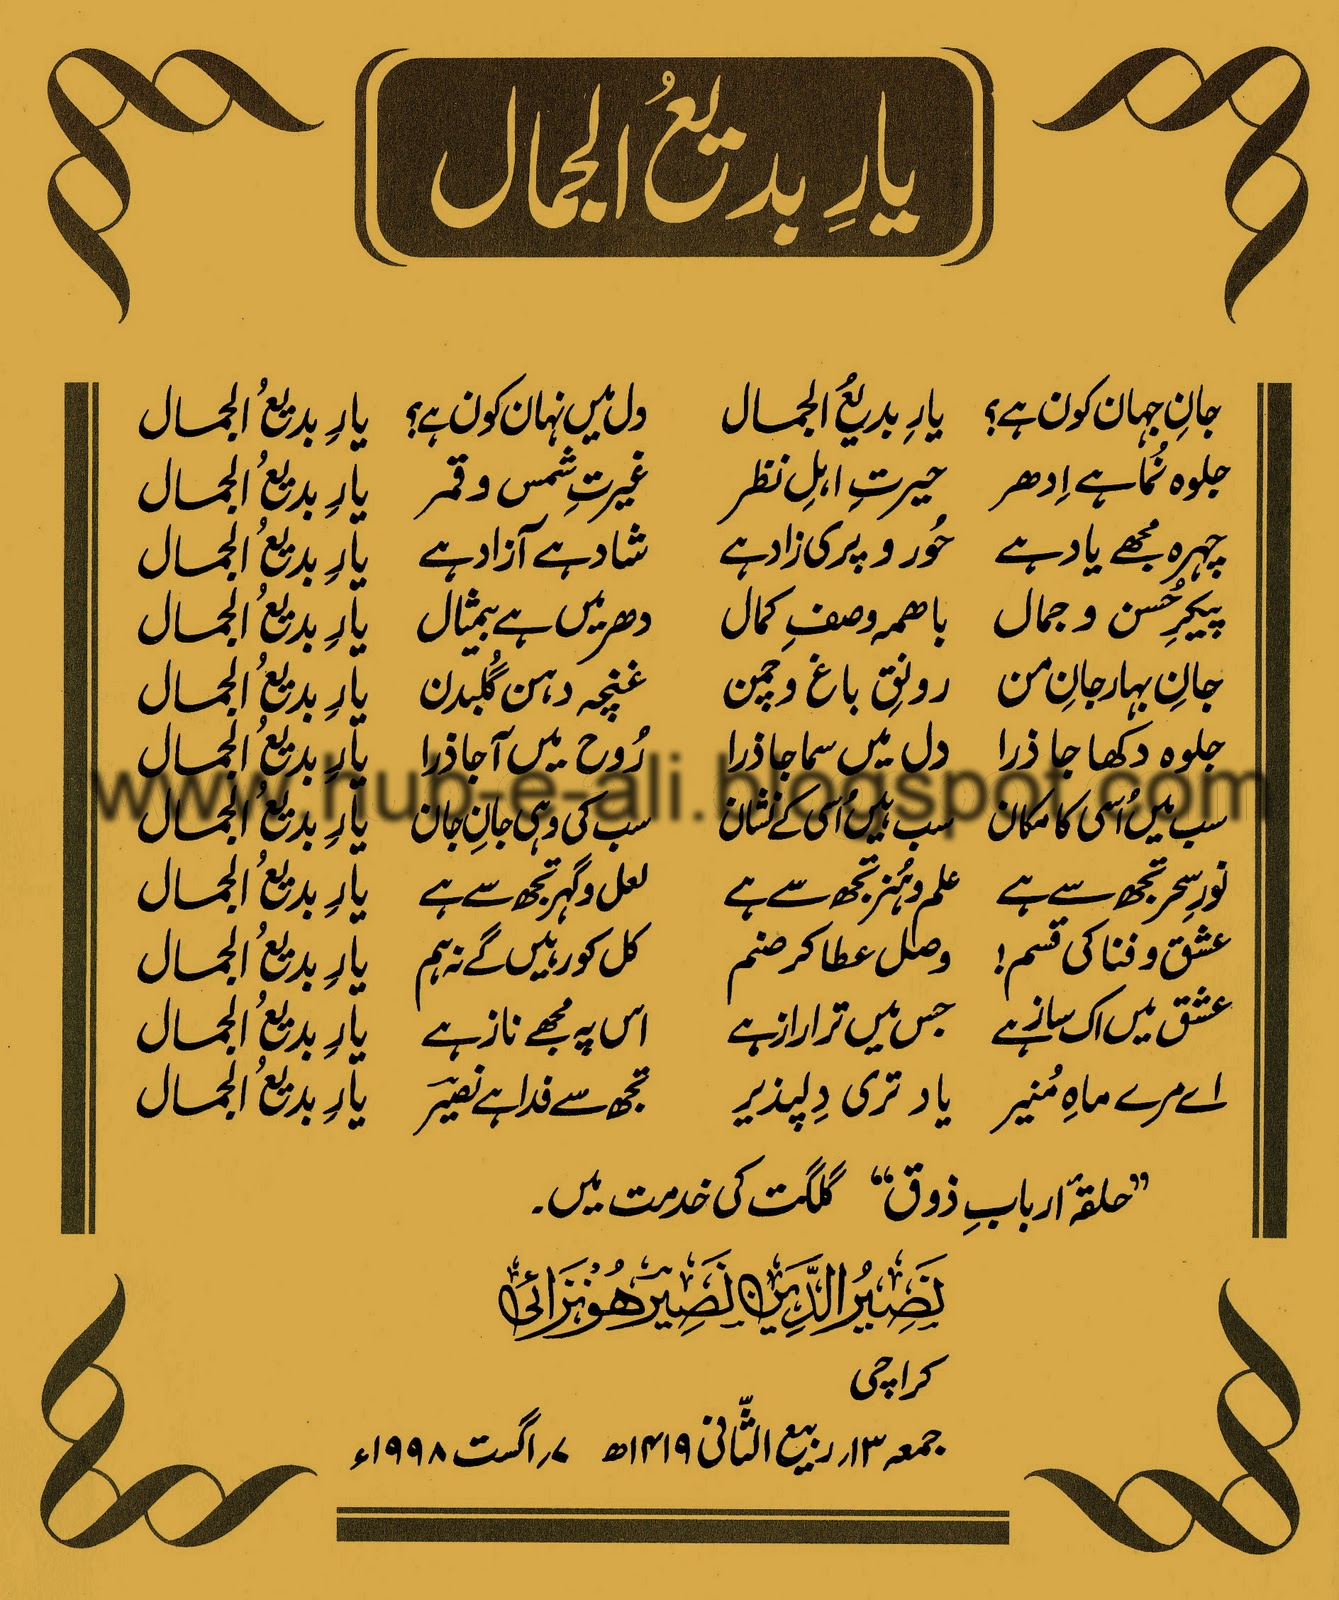 یارِ بدیعُ الجمال
جانِ جہان کون ہے؟ یارِ بدیعُ الجمال دل میں نہان کون ہے؟ یارِ بدیعُ الجمال
جلوہ نُما ہے اِدھر حیرتِ اہلِ نظر غیرتِ شمس و قمر یارِ بدیعُ الجمال
چہرہ مجھے یاد ہے حُور و پری زاد ہے شاد ہے آزاد ہے یارِ بدیعُ الجمال
پیکرِ حُسن و جمال باھمہ وصفِ کمال دھر میں ہے بیمثال یارِ بدیعُ الجمال
جانِ بہار جانِ من رونقِ باغ و چمن غنچہ دہن گُلبدن یارِ بدیعُ الجمال
جلوہ دکھا جا ذرا دل میں سما جا ذرا رُوح میں آجا ذرا یارِ بدیعُ الجمال
www.hub-e-ali.blogspot.com
سب میں اُسی کا مکان سب ہیں اُسی کے نشان سب کی وہی جانِ جان یارِ بدیعُ الجمال
نورِ سحر تجھ سے ہے علم و ہُنر تجھ سے ہے لعل و گہر تجھ سے ہے یارِ بدیعُ الجمال
عشق و فنا کی قسم! وصل عطا کر صنم کل کو رہیں گے نہ ہم یارِ بدیعُ الجمال
عشق میں اک ساز ہے جس میں ترا راز ہے اس پہ مجھے ناز ہے یارِ بدیعُ الجمال
اے مرے ماہِ مُنیر یاد تری دِلپذیر تجھ سے فدا ہے نصیرؔ یارِ بدیعُ الجمال
”حلقۂ اربابِ ذوق“ گلگت کی خدمت میں۔
نَصِیرُ الدِّین نَصِیرؔ ھُونزَائی
کراچی
جمعہ ۱۳؍ ربیع الثّانی ۱۴۱۹ھ ۷؍ اگست ۱۹۹۸ء